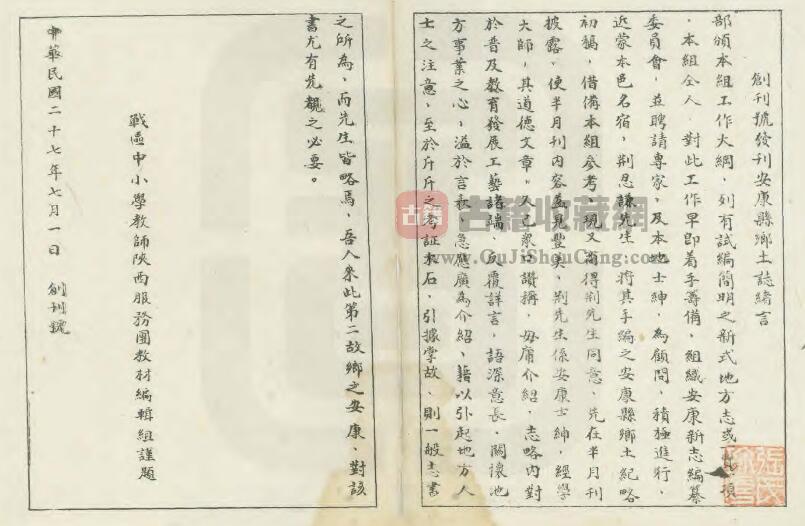 創刊號發刊安康縣鄉土誌緒言
部頒本組工作大綱，列有試編簡明之新式地方志或
，本組仝人，對此工作早即着手籌備，組織安康新志編纂
委員會，並聘請專家，及本地士紳，為顧問，積極進行，
近蒙本邑名宿，荆思謙先生，将其手編之安康縣鄉土紀略
初稿，借備本組參考，現又商得荆先生同意，先在半月刊
披露，使半月刊內容益見豐美，荆先生係安康士紳，經學
大師，其道德文章，久已衆口讚稱，毋庸介紹，志略內對
於普及教育發展工藝諸端，反覆詳言，語深意長，關懷地
方事業之心，溢於言表，急應廣為介紹，藉以引起地方人
士之注意，至於斤斤之考証木石，引據掌故，則一般志書
之所為，而先生皆略焉，吾人來此第二故鄉之安康，對該
書尤有先覩之必要。
戰區中小學教師陝西服務團教材編輯組謹題
中華民國二十七年七月一日 創刊號
古籍收藏网
www.GuJiShouCang.com